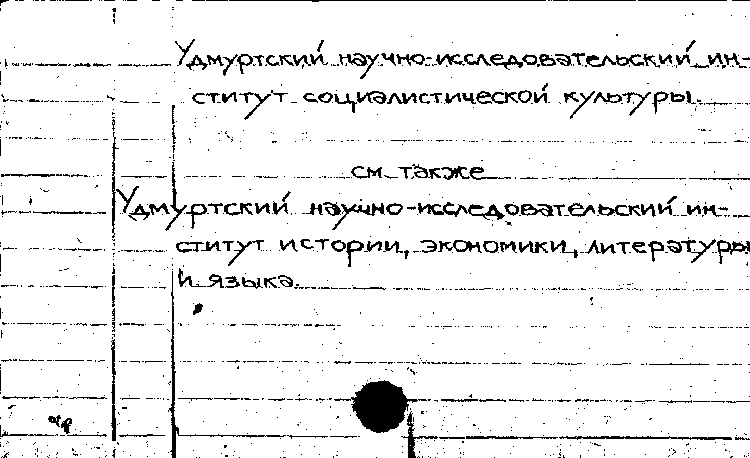 Удмуртский научно-исследовательский ин-
ститут социалистической культуры.
см. также
Удмуртский научно-исследовательский ин-
ститут истории, экономики, литературы
и языка.